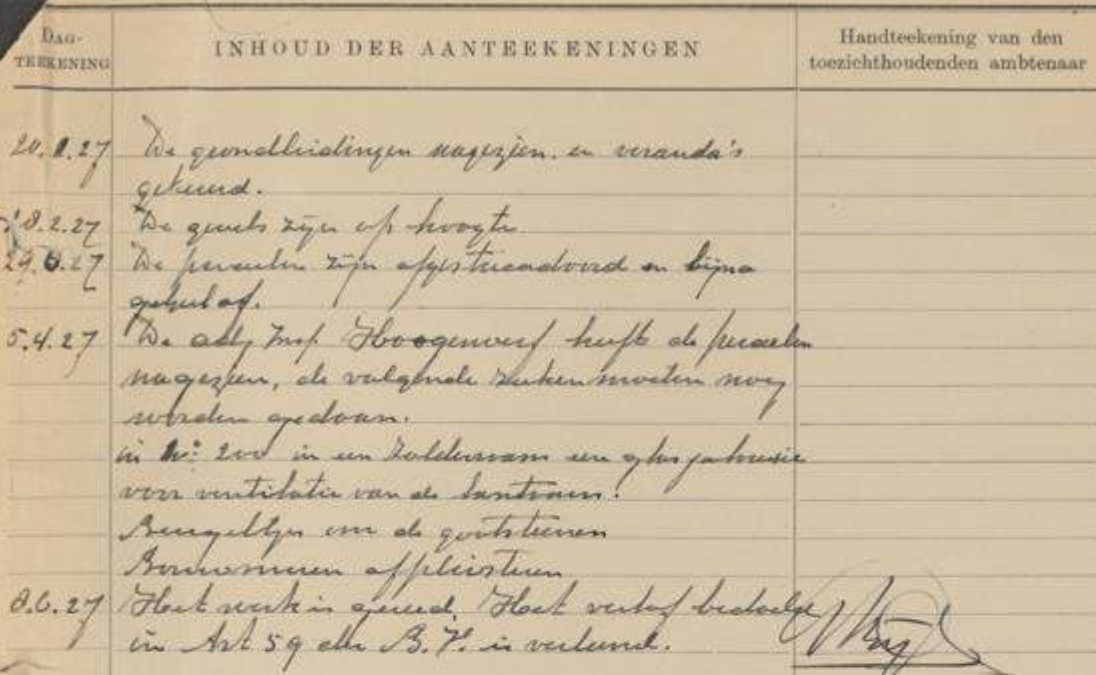 DAG-
TEEKENING
INHOUD DER AANTEEKENINGEN
Handteekening van den
toezichthoudenden ambtenaar
De grondleidingen nagezien. en veranda's
gekeurd.
8.2.27 De gevels zijn op hoogte
De perceelen zijn afgestucadoord en bijna
geheel af.
5.4.27 De adj Insp. Hoogenwerf heeft de perceelen
nagezien, de volgende zaken moeten nog
worden gedaan.
in No: 200 in een zolderraam een glasjalousie
voor ventilatie van de lantaarn.
Beugeltjes om de gootsteenen
Bouwmuren afpleisteren
8.6.27 Het werk is gereed. Het verlof bedoeld
in Art 59 der B.V. is verleend.